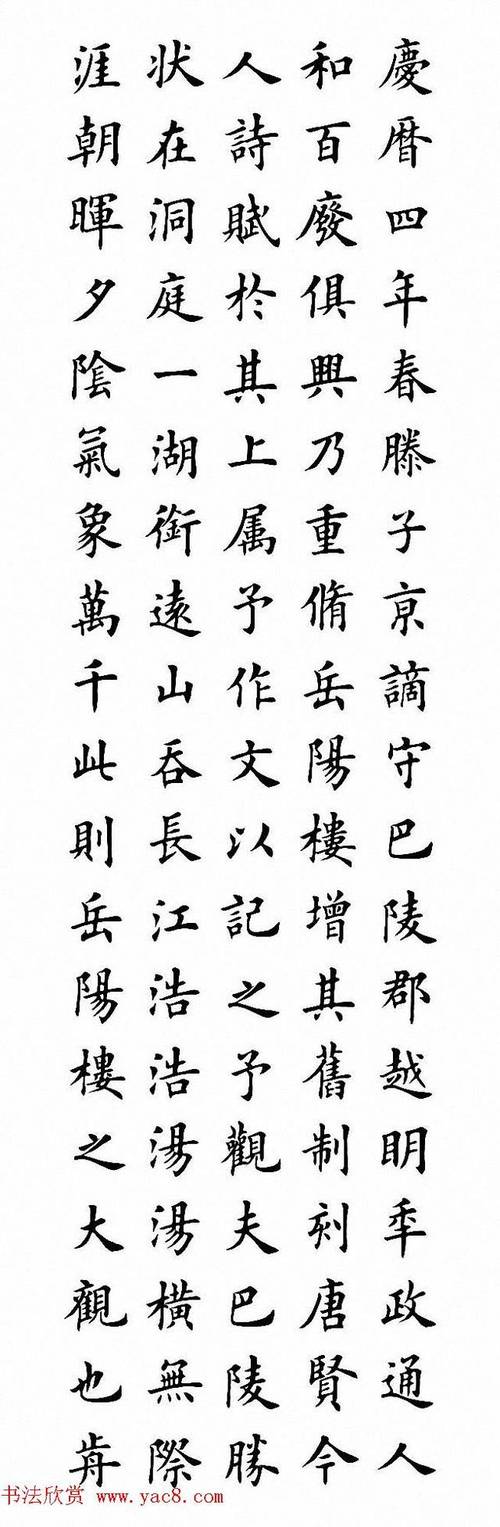 慶曆四年春滕子京謫守巴陵郡越明年政通人
和百廢俱興乃重脩岳陽樓增其舊制刻唐賢今
人詩賦於其上属予作文以記之予觀夫巴陵勝
状在洞庭一湖銜遠山吞長江浩浩湯湯橫無際
涯朝暉夕陰氣象萬千此則岳陽樓之大觀也前
书法欣赏 www.yac8.com